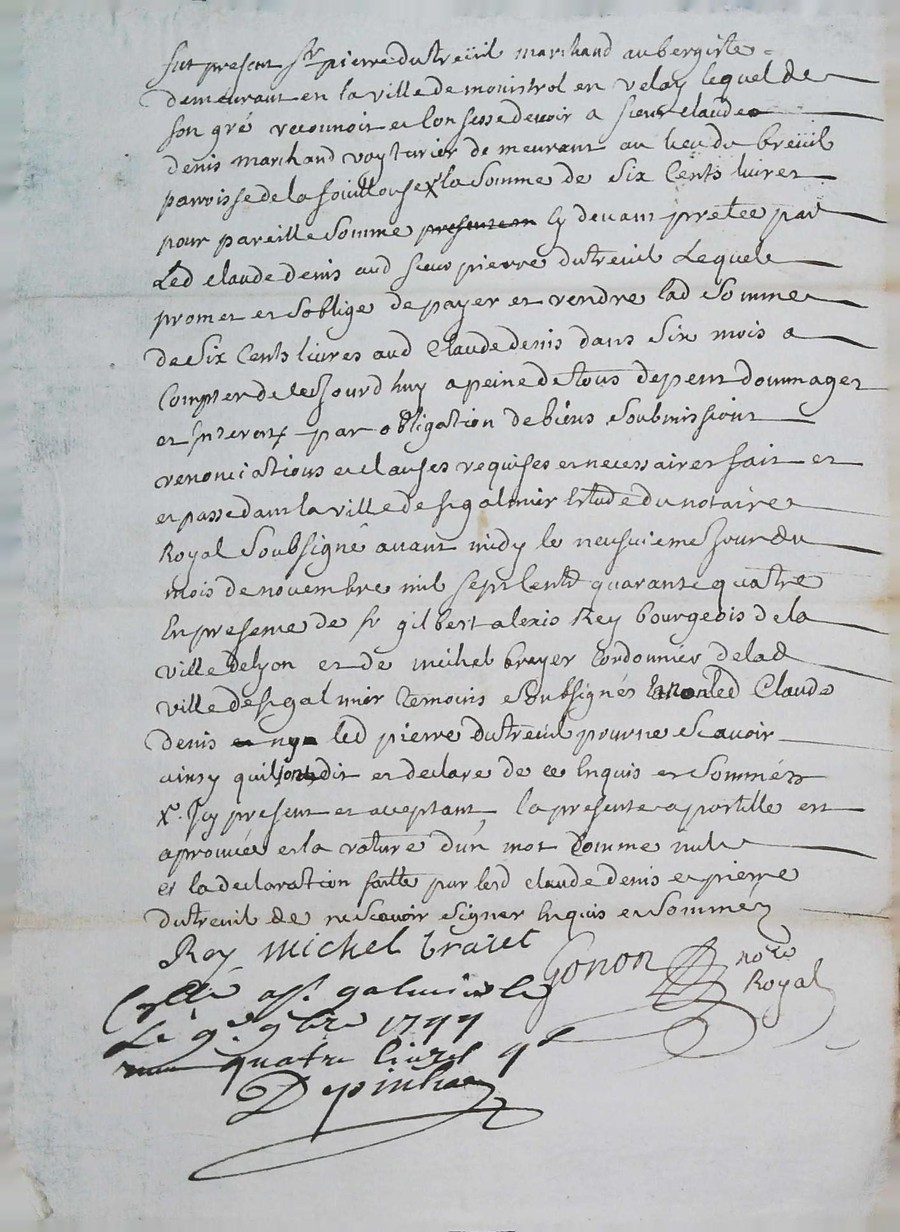 fut present Sr pierre dutreüil marchand aubergiste =
demeurant en la ville de monistrol en velay lequel de
son gré reconnoit et Confesse devoir a sieur claude
denis marchand voyturier demeurant au lieu du breüil
parroisse de la fouillouse x la somme de Six Cents livres
pour pareille Somme presentem Cy devant pretée par
Led claude denis aud sieur pierre dutreuil Lequel
promet et soblige de payer et rendre lad Somme
de Six Cents livres aud Claude denis dans Six mois a
Compter de ce Jourdhuy a peine de tous depens dommages
et Interets par obligation de biens Soubmissions
renonciations et clauses requises et necessaires fait et
et passe dans la ville de st galmier Estude du notaire
Royal Soubsigné avant midy le neufvieme Jour du
mois de novembre mil sept Cents quarante quatre
En presence de sr gilbert alexis Rey bourgeois de la
ville de lyon et de michel brayer Cordonnier de lad
ville de st galmier temoins Soubsignés et non led Claude
denis et ny led pierre dutreuil pour ne Scavoir
ainsy quil ont dit et declaré de ce Enquis et Sommés
x. Icy present et aceptant, la presente apostille est
aprouvée et la rature d'un mot Comme nulle
et la declaration faitte par lesd claude denis et pierre
dutreuil de ne Scavoir Signer Enquis et Sommez
Rey michel braiet Gonon nore
Royal
Cllé a st galmier le
Le 9e 9bre 1744
quatre livres 4s
Depinhac